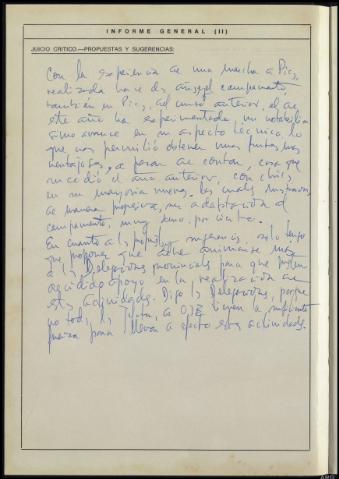 INFORME GENERAL (II)
JUICIO CRITICO.—PROPUESTAS Y SUGERENCIAS:
Con la experiencia de una marcha a Pie,
realizada hace dos años, y el campamento,
también en Pie, del curso anterior, el de
este año ha experimentado, un notabilísi
simo avance en su aspecto técnico, lo
que nos permitió obtener unos frutos más
ventajosos, a pesar de contar, cosa que
sucedió el año anterior, con chicos
en su mayoría nuevos, los cuales
de manera progresiva, su adaptación al
campamento, muy por ciento.
En cuanto a las propuestas y sugerencias solo tengo
que proponer que debe animarse más
a las Delegaciones provinciales para que presten
decidido apoyo en la realización de
estas actividades. Digo las Delegaciones, porque
no todos los de O.J.E. tienen la suficiente
fuerza para llevar a efecto estas actividades.